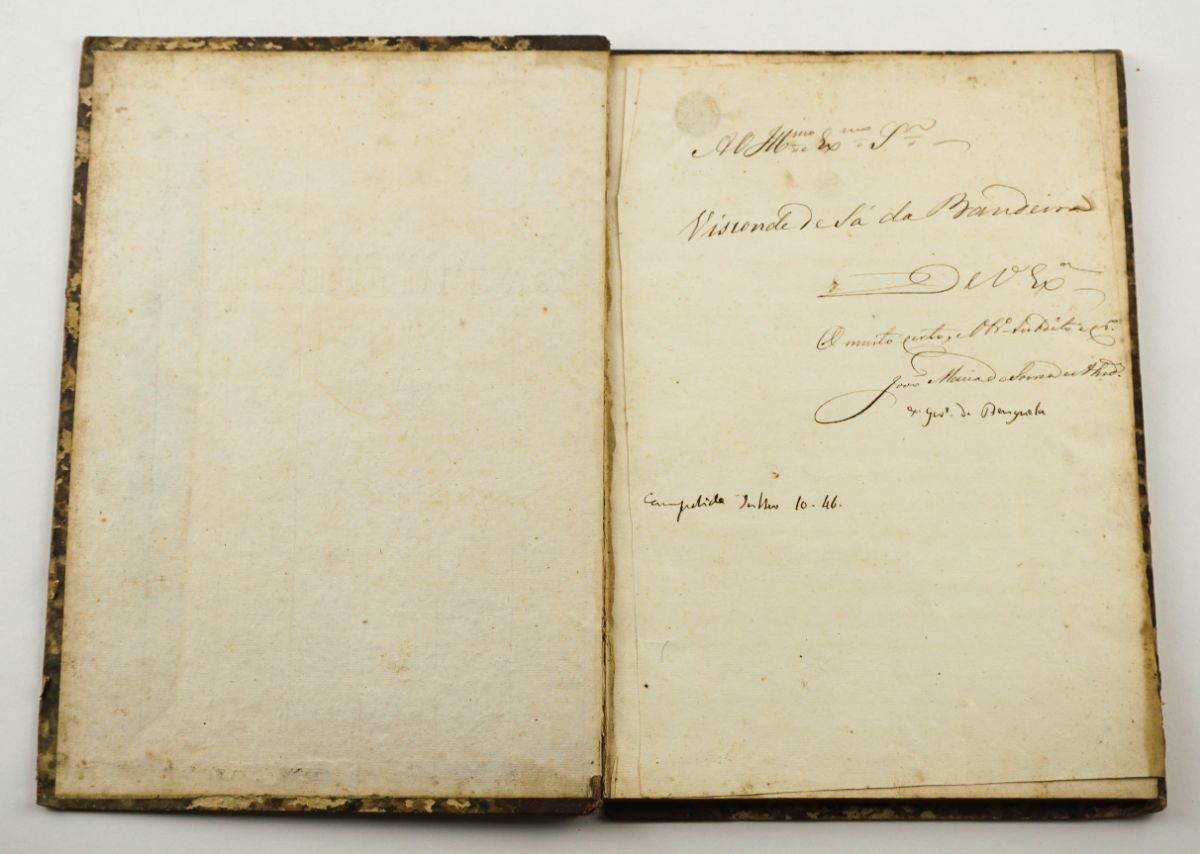 Ao Illmo. e Exmo. Snr.
Visconde de Sá da Bandeira
De V. Exa.
O muito certo, e Obro. Subdito e Cr.
João Maria de Sousa e Almda.
ex. govr. de Benguela
Campolide Julho 10-46.